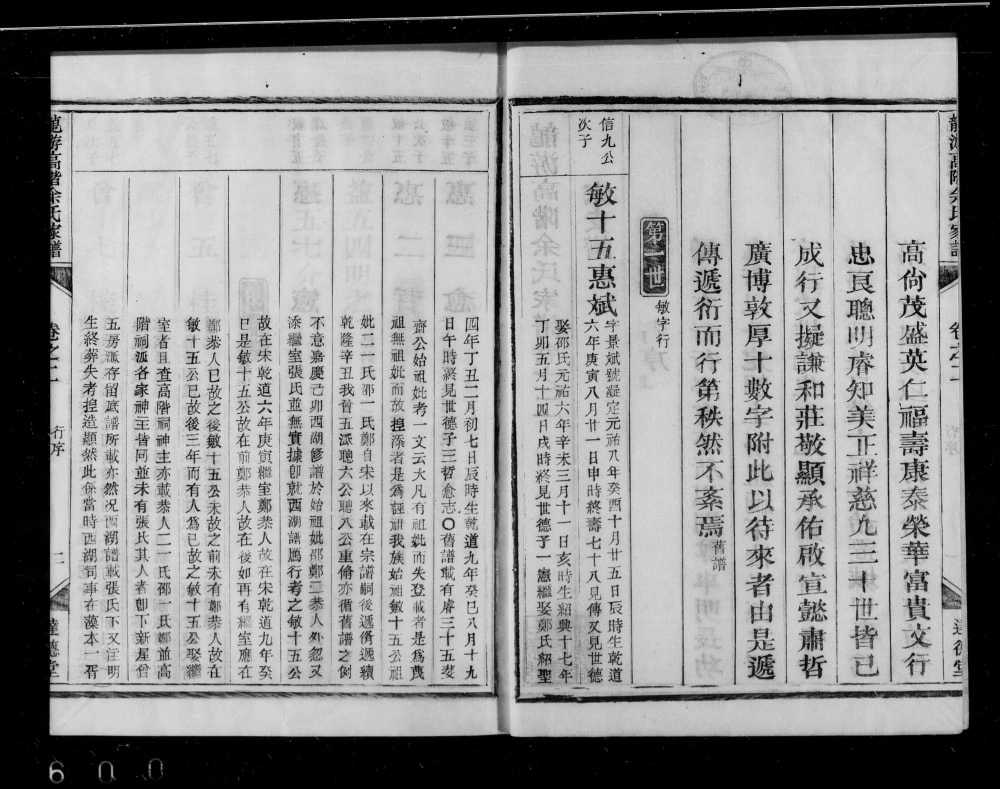 龍游高階余氏家譜
卷之二
達德堂
高尙茂盛英仁福壽康泰榮華富貴文行
忠良聰明睿知美正祥慈九三十世皆已
成行又擬謙和莊敬顯承佑啟宣懿肅哲
廣博敦厚十數字附此以待來者由是遞
傳遞衍而行第秩然不紊焉舊譜
第一世
敏字行
信九公
次子
敏十五惠斌
字景斌號凝定元祐八年癸酉十月廿五日辰時生乾道
六年庚寅八月廿一日申時終壽七十八見傳又見世德
娶邵氏元祐六年辛未三月十一日亥時生紹興十七年
丁卯五月十四日戌時終見世德子一憲繼娶鄭氏紹聖
四年丁丑二月初七日辰時生乾道九年癸巳八月十九
日午時終見世德子三哲愈志〇舊譜載有睿三十五
齊公始祖妣考一文云大凡有祖妣而失登載者是為蔑
祖無祖妣而故捏添者是爲誣祖我族始祖敏十五公祖
妣二一氏邵一氏鄭自宋以來載在宗譜嗣後遞脩遞續
乾隆辛丑我曾五派聰六公聽八公重脩亦循舊譜之例
不意嘉慶己卯西湖修譜於始祖妣邵鄭二恭人外忽又
添繼室張氏並無實據卽就西湖譜厯行考之敏十五公
故在宋乾道六年庚寅繼室鄭恭人故在宋乾道九年癸
巳是敏十五公故在前鄭恭人故在後如再有繼室應在
鄭恭人已故之後敏十五公未故之前未有鄭恭人故在
敏十五公已故後三年而有人爲已故之敏十五公娶繼
室者且查高階祠神主亦載恭人二一氏邵一氏鄭並高
階祠派各家神主皆同並未有張氏其人者卽下新屋曾
五房派存留底譜所載亦然况西湖譜載張氏下又注明
生終葬失考捏造顯然此係當時西湖司事在藻本一胥
龍游高階余氏家譜
卷之二
行序
二
達德堂
600